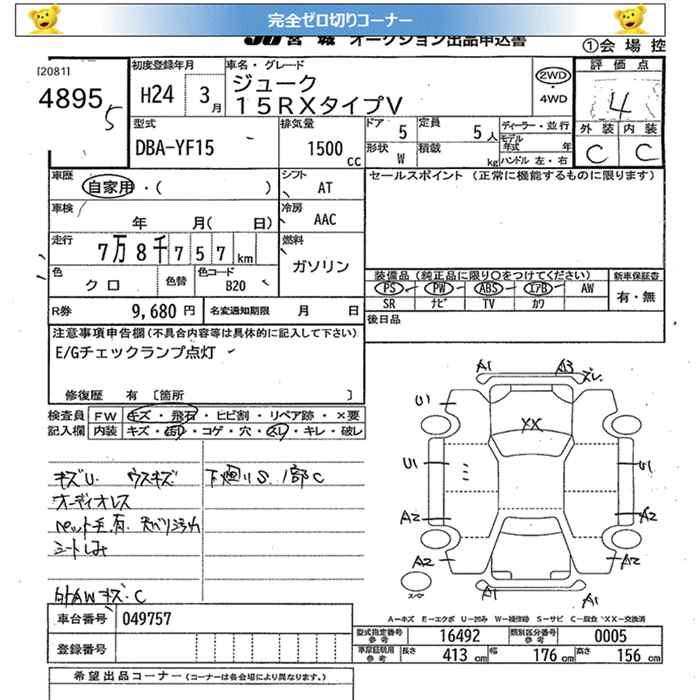 完全ゼロ切りコーナー
JU宮城 オークション出品申込書 ①会場控
[2081]
4895 5
初度登録年月
H24 3月
車名・グレード
ジューク
15RXタイプV
2WD
・
4WD
評価点
4
外装 内装
C C
型式
DBA-YF15
排気量
1500cc
ドア 5
形状 W
定員 5人
積載 kg
ディーラー・並行
モデル年式 年
ハンドル 左・右
車歴
自家用・( )
シフト
AT
セールスポイント (正常に機能するものに限ります)
車検
年 月( 日)
冷房
AAC
走行
7万8千757km
燃料
ガソリン
色
クロ
色替
色コード
B20
装備品(純正品に限り○をつけてください)
PS PW ABS エアB AW
SR ナビ TV カワ
新車保証書
有・無
R券 9,680円
名変通知期限 月 日
後日品
注意事項申告欄(不具合内容等は具体的に記入して下さい)
E/Gチェックランプ点灯
修復歴 有 [箇所 ]
検査員記入欄
FW キズ・飛石・ヒビ割・リペア跡・×要
内装 キズ・汚れ・コゲ・穴・スレ・キレ・破レ
キズU. ウスキズ
下廻りS. 1部C
オーディオレス
ペット毛.有.
シートしみ
外AWキズ.C
A1 A3 スレ
U1
XX
U1 U1
A2 A2
A2 A2
A1 A1
スペア
A=キズ E=エクボ U=凹み W=補修跡 S=サビ C=腐食 XX=交換済
車台番号 049757
登録番号
型式指定番号 参考 16492
類別区分番号 参考 0005
車庫証明用 参考 長さ 413cm 幅 176cm 高さ 156cm
希望出品コーナー(コーナーは各会場により異なります)